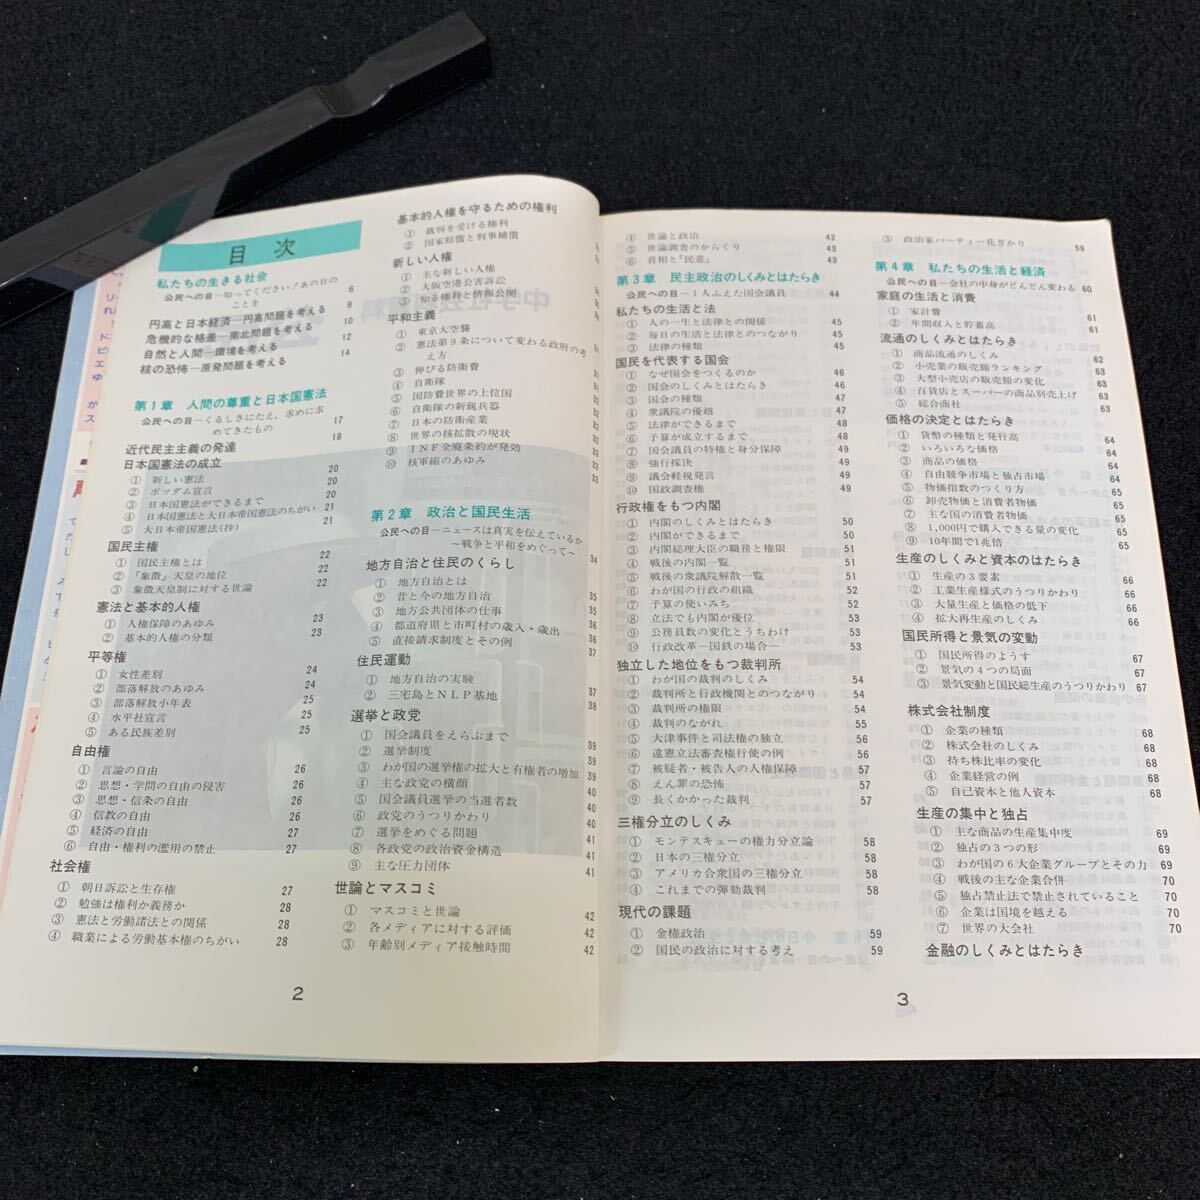 目次
私たちの生きる社会
公民への目―知ってください!あの日の
ことを 6
円高と日本経済―円高問題を考える 8
危機的な格差―南北問題を考える 10
自然と人間―環境を考える 12
核の恐怖―原発問題を考える 14
第1章 人間の尊重と日本国憲法
公民への目―くるしきにたえ、求めに求
めてきたもの 17
近代民主主義の発達 18
日本国憲法の成立
① 新しい憲法 20
② ポツダム宣言 20
③ 日本国憲法ができるまで 20
④ 日本国憲法と大日本帝国憲法のちがい 21
⑤ 大日本帝国憲法(抄) 21
国民主権
① 国民主権とは 22
② 「象徴」天皇の地位 22
③ 象徴天皇制に対する世論 22
憲法と基本的人権
① 人権保障のあゆみ 23
② 基本的人権の分類 23
平等権
① 女性差別 24
② 部落解放のあゆみ 24
③ 部落解放小年表 25
④ 水平社宣言 25
⑤ ある民族差別 25
自由権
① 言論の自由 26
② 思想・学問の自由の侵害 26
③ 思想・信条の自由 26
④ 信教の自由 26
⑤ 経済の自由 27
⑥ 自由・権利の濫用の禁止 27
社会権
① 朝日訴訟と生存権 27
② 勉強は権利か義務か 28
③ 憲法と労働諸法との関係 28
④ 職業による労働基本権のちがい 28
基本的人権を守るための権利
① 裁判を受ける権利
② 国家賠償と刑事補償
新しい人権
① 主な新しい人権
② 大阪空港公害訴訟
③ 知る権利と情報公開
平和主義
① 東京大空襲
② 憲法第9条について変わる政府の考
え方 31
③ 伸びる防衛費 31
④ 自衛隊 31
⑤ 国防費世界の上位国 32
⑥ 自衛隊の新鋭兵器 32
⑦ 日本の防衛産業 32
⑧ 世界の核拡散の現状 32
⑨ INF全廃条約が発効 33
⑩ 核軍縮のあゆみ 33
第2章 政治と国民生活
公民への目―ニュースは真実を伝えているか
~戦争と平和をめぐって~ 34
地方自治と住民のくらし
① 地方自治とは 35
② 昔と今の地方自治 35
③ 地方公共団体の仕事 36
④ 都道府県と市町村の歳入・歳出 36
⑤ 直接請求制度とその例 37
住民運動
① 地方自治の実験 37
② 三宅島とNLP基地 38
選挙と政党
① 国会議員をえらぶまで 39
② 選挙制度 39
③ わが国の選挙権の拡大と有権者の増加 39
④ 主な政党の横顔 40
⑤ 国会議員選挙の当選者数 40
⑥ 政党のうつりかわり 40
⑦ 選挙をめぐる問題 41
⑧ 各政党の政治資金構造 41
⑨ 主な圧力団体 41
世論とマスコミ
① マスコミと世論 42
② 各メディアに対する評価 42
③ 年齢別メディア接触時間 42
2
④ 世論と政治 42
⑤ 世論調査のからくり 43
⑥ 首相と「民意」 43
第3章 民主政治のしくみとはたらき
公民への目―1人ふえた国会議員 44
私たちの生活と法
① 人の一生と法律との関係 45
② 毎日の生活と法律とのつながり 45
③ 法律の種類 45
国民を代表する国会
① なぜ国会をつくるのか 46
② 国会のしくみとはたらき 46
③ 国会の種類 47
④ 衆議院の優越 47
⑤ 法律ができるまで 48
⑥ 予算が成立するまで 48
⑦ 国会議員の特権と身分保障 49
⑧ 強行採決 49
⑨ 議会軽視発言 49
⑩ 国政調査権 49
行政権をもつ内閣
① 内閣のしくみとはたらき 50
② 内閣ができるまで 50
③ 内閣総理大臣の職務と権限 51
④ 戦後の内閣一覧 51
⑤ 戦後の衆議院解散一覧 51
⑥ わが国の行政の組織 52
⑦ 予算の使いみち 52
⑧ 立法でも内閣が優位 53
⑨ 公務員数の変化とうちわけ 53
⑩ 行政改革―国鉄の場合― 53
独立した地位をもつ裁判所
① わが国の裁判のしくみ 54
② 裁判所と行政機関とのつながり 54
③ 裁判所の権限 54
④ 裁判のながれ 55
⑤ 大津事件と司法権の独立 56
⑥ 違憲立法審査権行使の例 56
⑦ 被疑者・被告人の人権保障 57
⑧ えん罪の恐怖 57
⑨ 長くかかった裁判 57
三権分立のしくみ
① モンテスキューの権力分立論 58
② 日本の三権分立 58
③ アメリカ合衆国の三権分立 58
④ これまでの弾劾裁判 58
現代の課題
① 金権政治 59
② 国民の政治に対する考え 59
③ 政治家パーティー花ざかり 59
第4章 私たちの生活と経済
公民への目―会社の中身がどんどん変わる 60
家庭の生活と消費
① 家計費 61
② 年間収入と貯蓄高 61
流通のしくみとはたらき
① 商品流通のしくみ 62
② 小売業の販売額ランキング 63
③ 大型小売店の販売額の変化 63
④ 百貨店とスーパーの商品別売上げ 63
⑤ 総合商社 63
価格の決定とはたらき
① 貨幣の種類と発行高 64
② いろいろな価格 64
③ 商品の価格 64
④ 自由競争市場と独占市場 64
⑤ 物価指数のつくり方 65
⑥ 卸売物価と消費者物価 65
⑦ 主な国の消費者物価 65
⑧ 1,000円で購入できる量の変化 65
⑨ 10年間で1兆倍 65
生産のしくみと資本のはたらき
① 生産の3要素 66
② 工業生産様式のうつりかわり 66
③ 大量生産と価格の低下 66
④ 拡大再生産のしくみ 66
国民所得と景気の変動
① 国民所得のようす 67
② 景気の4つの局面 67
③ 景気変動と国民総生産のうつりかわり 67
株式会社制度
① 企業の種類 68
② 株式会社のしくみ 68
③ 持ち株比率の変化 68
④ 企業経営の例 68
⑤ 自己資本と他人資本 68
生産の集中と独占
① 主な商品の生産集中度 69
② 独占の3つの形 69
③ わが国の6大企業グループとその力 69
④ 戦後の主な企業合併 70
⑤ 独占禁止法で禁止されていること 70
⑥ 企業は国境を越える 70
⑦ 世界の大会社 70
金融のしくみとはたらき
3